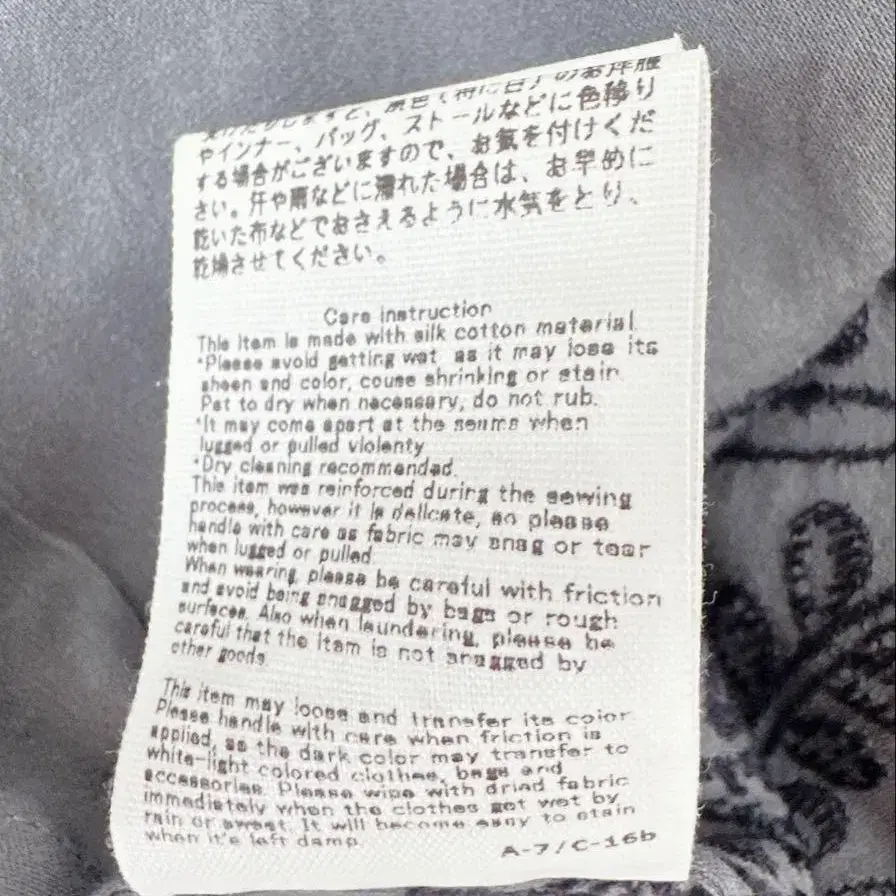 やインナー、バッグ、ストールなどに色移り
する場合がございますので、お気を付けくだ
さい。汗や雨などに濡れた場合は、お早めに
乾いた布などでおさえるように水気をとり、
乾燥させてください。
Care instruction
This item is made with silk cotton material.
*Please avoid getting wet as it may lose its
sheen and color, couse shrinking or stain.
Pat to dry when necessary, do not rub.
*It may come apart at the seams when
lugged or pulled violenty
*Dry cleaning recommended.
This item was reinforced during the sewing
process, however it is delicate, so please
handle with care as fabric may snag or tear
when lugged or pulled.
When wearing, please be careful with friction
and avoid being snagged by bags or rough
surfaces. Also when laundering, please be
careful that the item is not snagged by
other goods.
This item may loose and transfer its color.
Please handle with care when friction is
applied, as the dark color may transfer to
white-light colored clothes, bags and
accessories. Please wipe with dried fabric
immediately when the clothes get wet by
rain or sweat. It will become easy to stain
when it's left damp.
A-7/C-16b